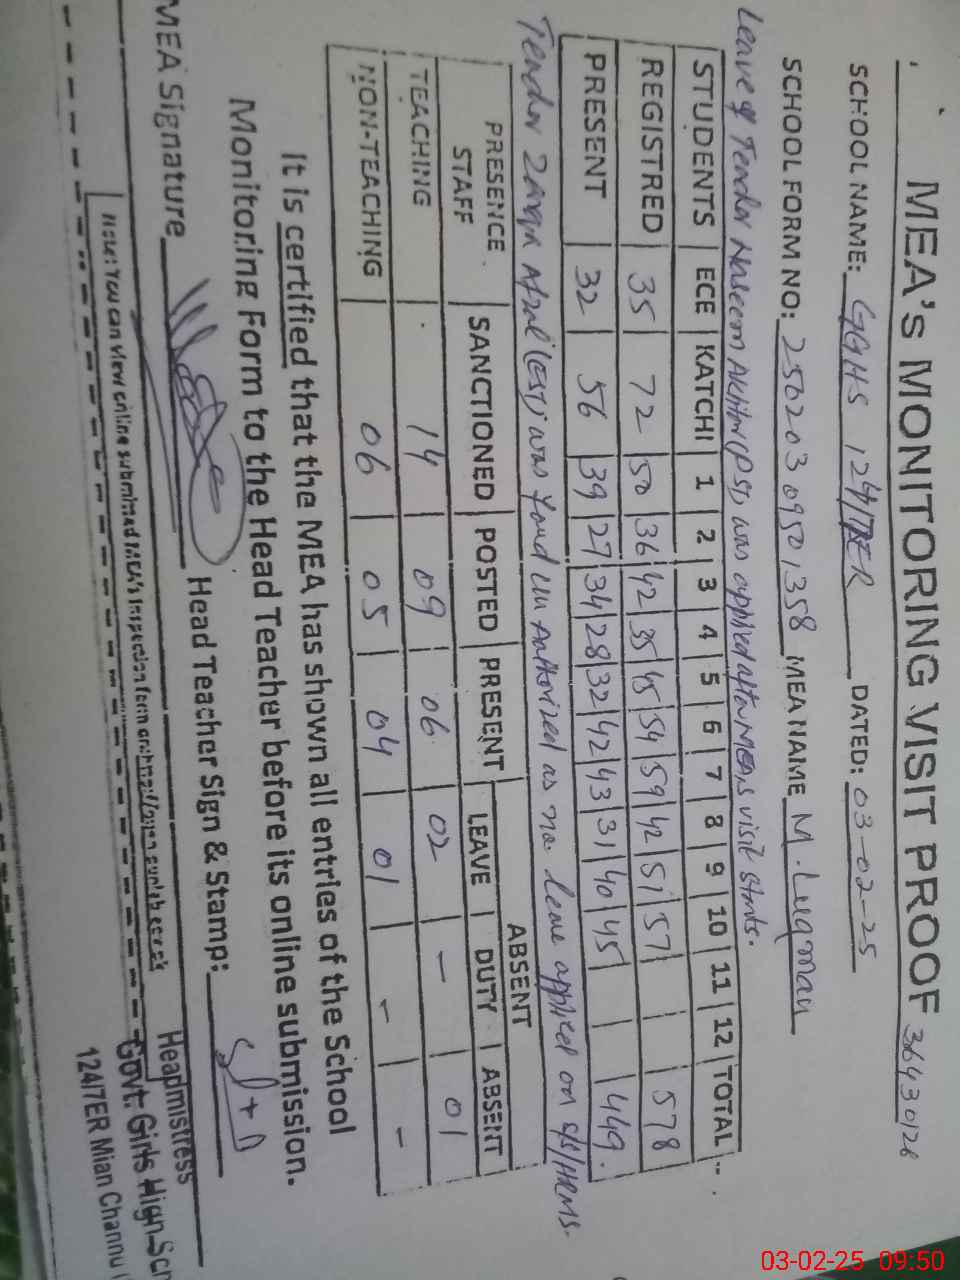 MEA's MONITORING VISIT PROOF 36430126
SCHOOL NAME: GGHS 124/7ER DATED: 03-02-25
SCHOOL FORM NO: 25020309501358 MEA NAME M. Luqman
Leave of Teacher Naseem Akhtar (PST) was applied after MEA,s visit starts.
STUDENTS ECE KATCHI 1 2 3 4 5 6 7 8 9 10 11 12 TOTAL
REGISTRED 35 72 50 36 42 35 45 54 59 42 51 57 578
PRESENT 32 56 39 27 34 28 32 42 43 31 40 45 449.
Teacher Afzal (EST) was found un Authorized as no leave applied on sis/HRMS.
PRESENCE STAFF SANCTIONED POSTED PRESENT ABSENT
LEAVE DUTY ABSENT
TEACHING 14 09 06 02 – 01
NON-TEACHING 06 05 04 01 – –
It is certified that the MEA has shown all entries of the School
Monitoring Form to the Head Teacher before its online submission.
MEA Signature Head Teacher Sign & Stamp:
Headmistress
Govt. Girls High Sch
124/7ER Mian Channu
Note: You can view online submitted MEA's Inspection form on
03-02-25 09:50